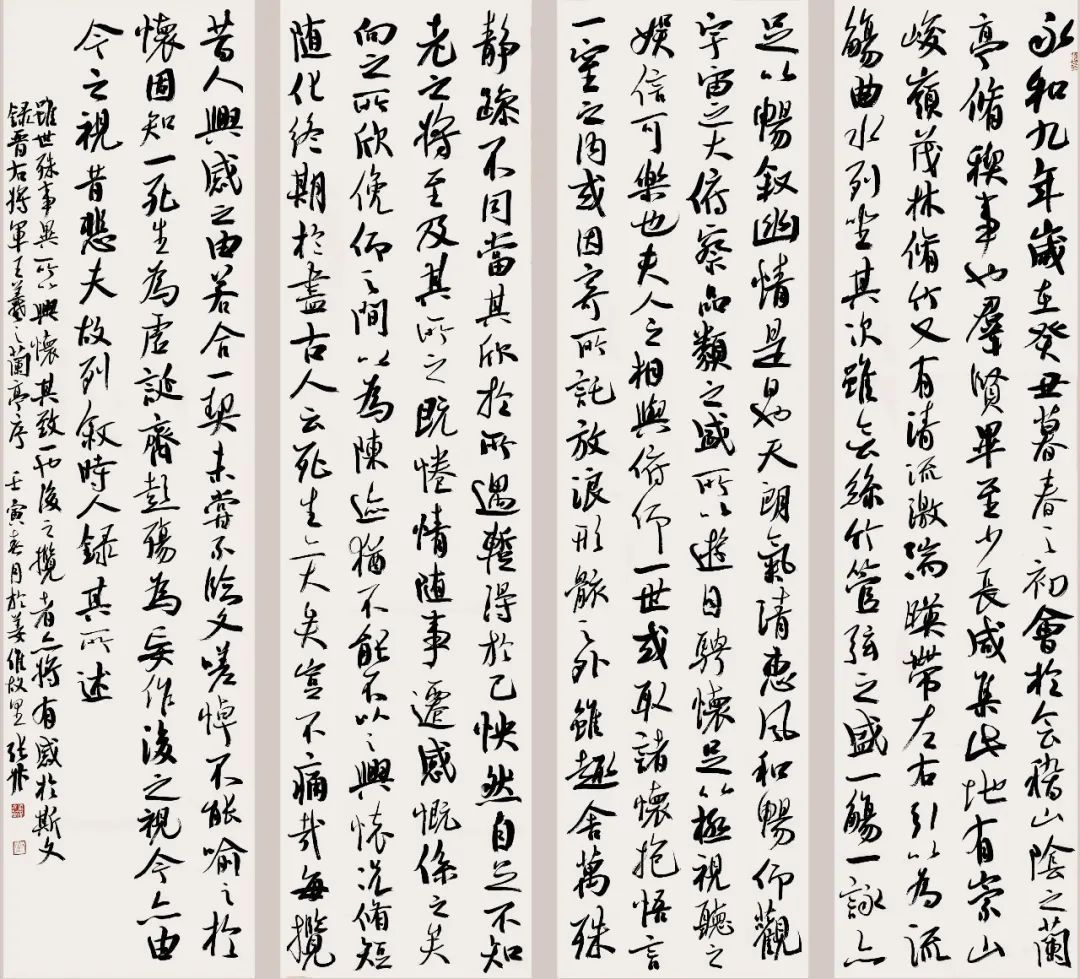 永和九年歲在癸丑暮春之初會於会稽山陰之蘭
亭脩稧事也羣賢畢至少長咸集此地有崇山
峻嶺茂林脩竹又有清流激湍暎帶左右引以為流
觴曲水列坐其次雖無絲竹管弦之盛一觴一詠亦
足以暢叙幽情是日也天朗氣清惠風和暢仰觀
宇宙之大俯察品類之盛所以遊目騁懷足以極視聽之
娛信可樂也夫人之相與俯仰一世或取諸懷抱悟言
一室之内或因寄所託放浪形骸之外雖趣舍萬殊
靜躁不同當其欣於所遇暫得於己怏然自足不知
老之將至及其所之既惓情随事遷感慨係之矣
向之所欣俛仰之間以為陳迹猶不能不以之興懷況脩短
随化終期於盡古人云死生亦大矣豈不痛哉每攬
昔人興感之由若合一契未嘗不臨文嗟悼不能喻之於
懷固知一死生為虛誕齊彭殤為妄作後之視今亦由
今之視昔悲夫故列叙時人録其所述
雖世殊事異所以興懷其致一也後之攬者亦將有感於斯文
録晉右將軍王羲之蘭亭序 壬寅春月於姜維故里 張